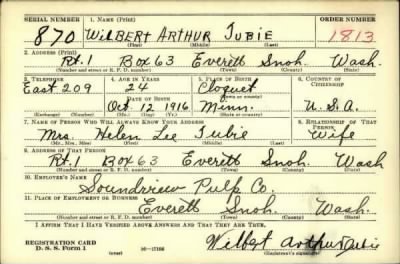 SERIAL NUMBER 1. NAME (Print) ORDER NUMBER
870 WILBERT ARTHUR TUBIE 1813
(First) (Middle) (Last)
2. ADDRESS (Print)
Rt. 1 Box 63 Everett Snoh. Wash.
(Number and street or R. F. D. number) (Town) (County) (State)
3. TELEPHONE 4. AGE IN YEARS 5. PLACE OF BIRTH 6. COUNTRY OF CITIZENSHIP
East 209 24 Cloquet
DATE OF BIRTH (Town or county)
Oct. 12 1916 Minn. U.S.A.
(Exchange) (Number) (Mo.) (Day) (Yr.) (State or country)
7. NAME OF PERSON WHO WILL ALWAYS KNOW YOUR ADDRESS 8. RELATIONSHIP OF THAT PERSON
Mrs. Helen Lee Tubie Wife
(Mr., Mrs., Miss) (First) (Middle) (Last)
9. ADDRESS OF THAT PERSON
Rt. 1 Box 63 Everett Snoh. Wash
(Number and street or R. F. D. number) (Town) (County) (State)
10. EMPLOYER'S NAME
Soundview Pulp Co.
11. PLACE OF EMPLOYMENT OR BUSINESS
Everett Snoh. Wash.
(Number and street or R. F. D. number) (Town) (County) (State)
I AFFIRM THAT I HAVE VERIFIED ABOVE ANSWERS AND THAT THEY ARE TRUE.
REGISTRATION CARD
D. S. S. Form 1 (over) Wilbert Arthur Tubie
(Registrant's signature)